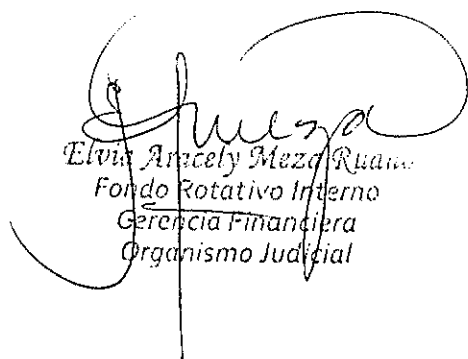 Elvia Aracely Meza Ruano
Fondo Rotativo Interno
Gerencia Financiera
Organismo Judicial